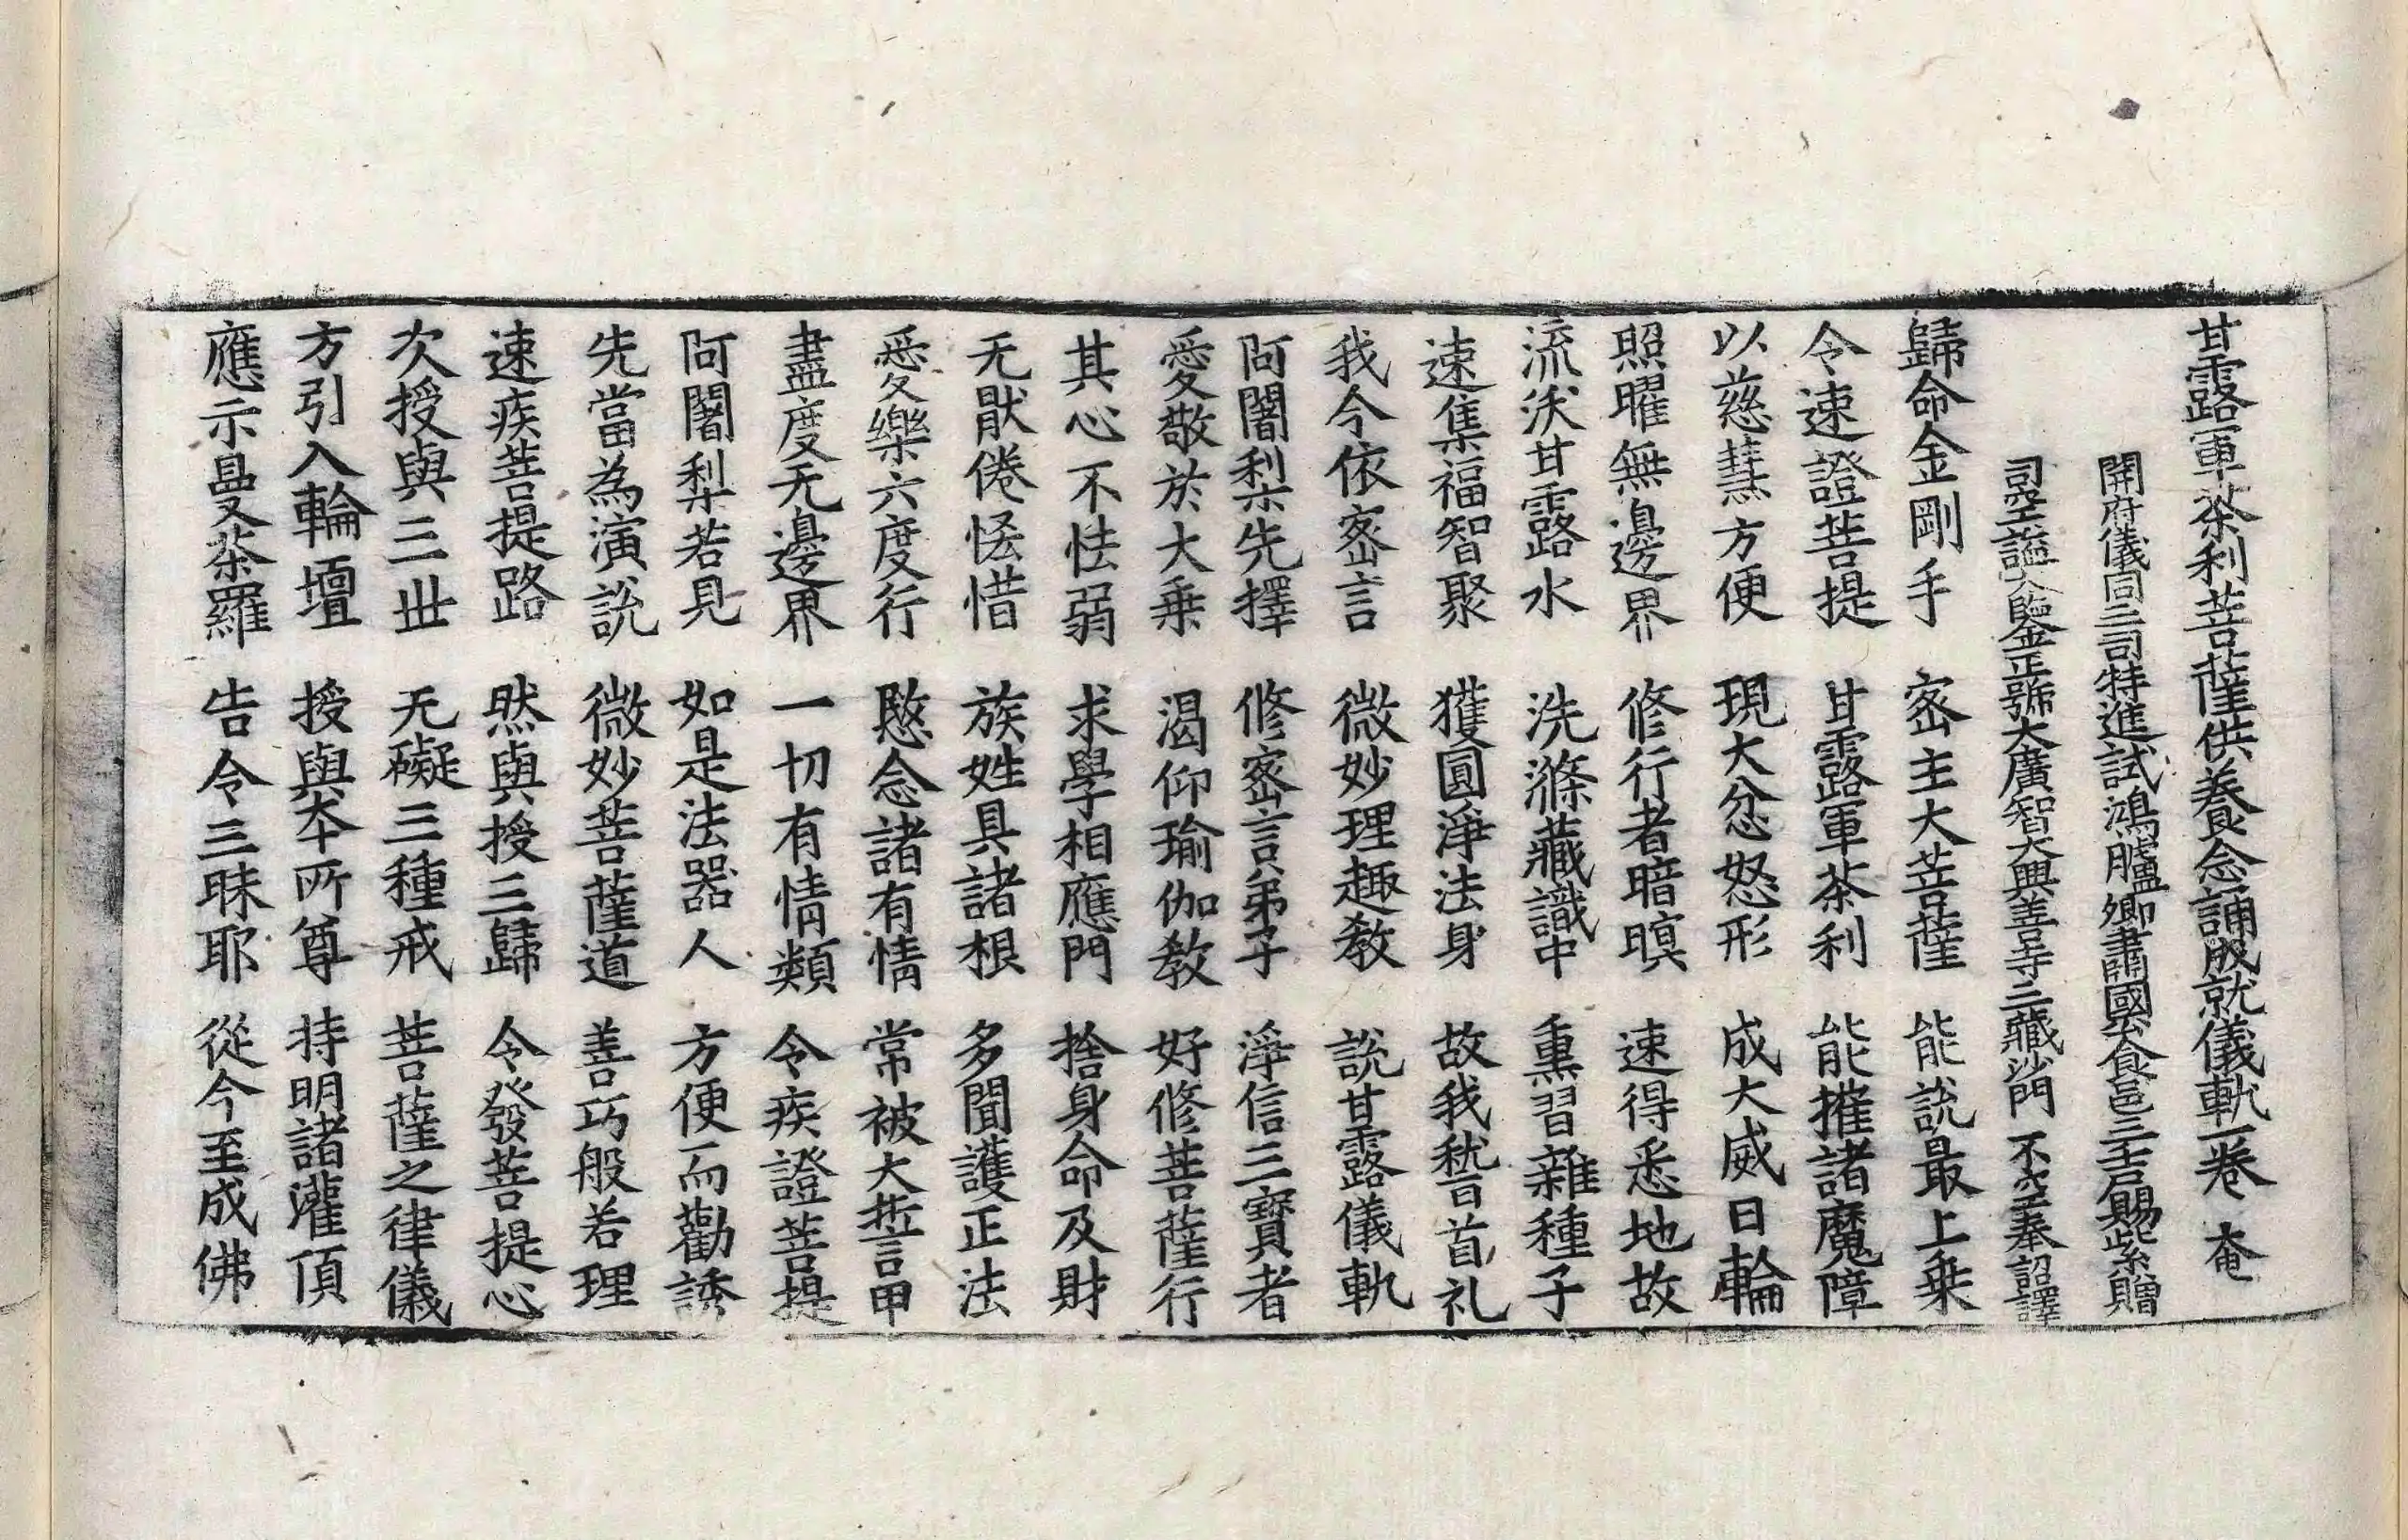 甘露軍茶利菩薩供養念誦成就儀軌一卷 奄
開府儀同三司特進試鴻臚卿肅國公食邑三千戶賜紫贈
司空謚大鑒正號大廣智大興善寺三藏沙門 不空奉詔譯
歸命金剛手 密主大菩薩 能說最上乗
令速證菩提 甘露軍荼利 能摧諸魔障
以慈慧方便 現大忿怒形 成大威日輪
照曜無邊界 修行者暗暝 速得悉地故
流沃甘露水 洗滌藏識中 熏習雜種子
速集福智聚 獲圓淨法身 故我嵇首礼
我今依密言 微妙理趣教 說甘露儀軌
阿闍梨先擇 修密言弟子 淨信三寶者
愛敬於大乗 渴仰瑜伽教 好修菩薩行
其心不怯弱 求學相應門 捨身命及財
无猒倦恡惜 族姓具諸根 多聞護正法
愛樂六度行 愍念諸有情 常被大誓甲
盡度无邊界 一切有情類 令疾證菩提
阿闍梨若見 如是法器人 方便而勸誘
先當為演說 微妙菩薩道 善巧般若理
速疾菩提路 然與授三歸 令發菩提心
次授與三世 无礙三種戒 菩薩之律儀
方引入輪壇 授與夲所尊 持明諸灌頂
應示曼荼羅 告令三昧耶 從今至成佛